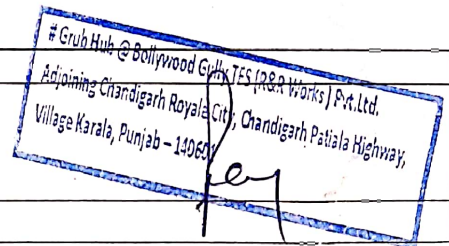 # Grub Hub @ Bollywood Gully TES (R&R Works) Pvt.Ltd.
Adjoining Chandigarh Royale City, Chandigarh Patiala Highway,
Village Karala, Punjab – 140601